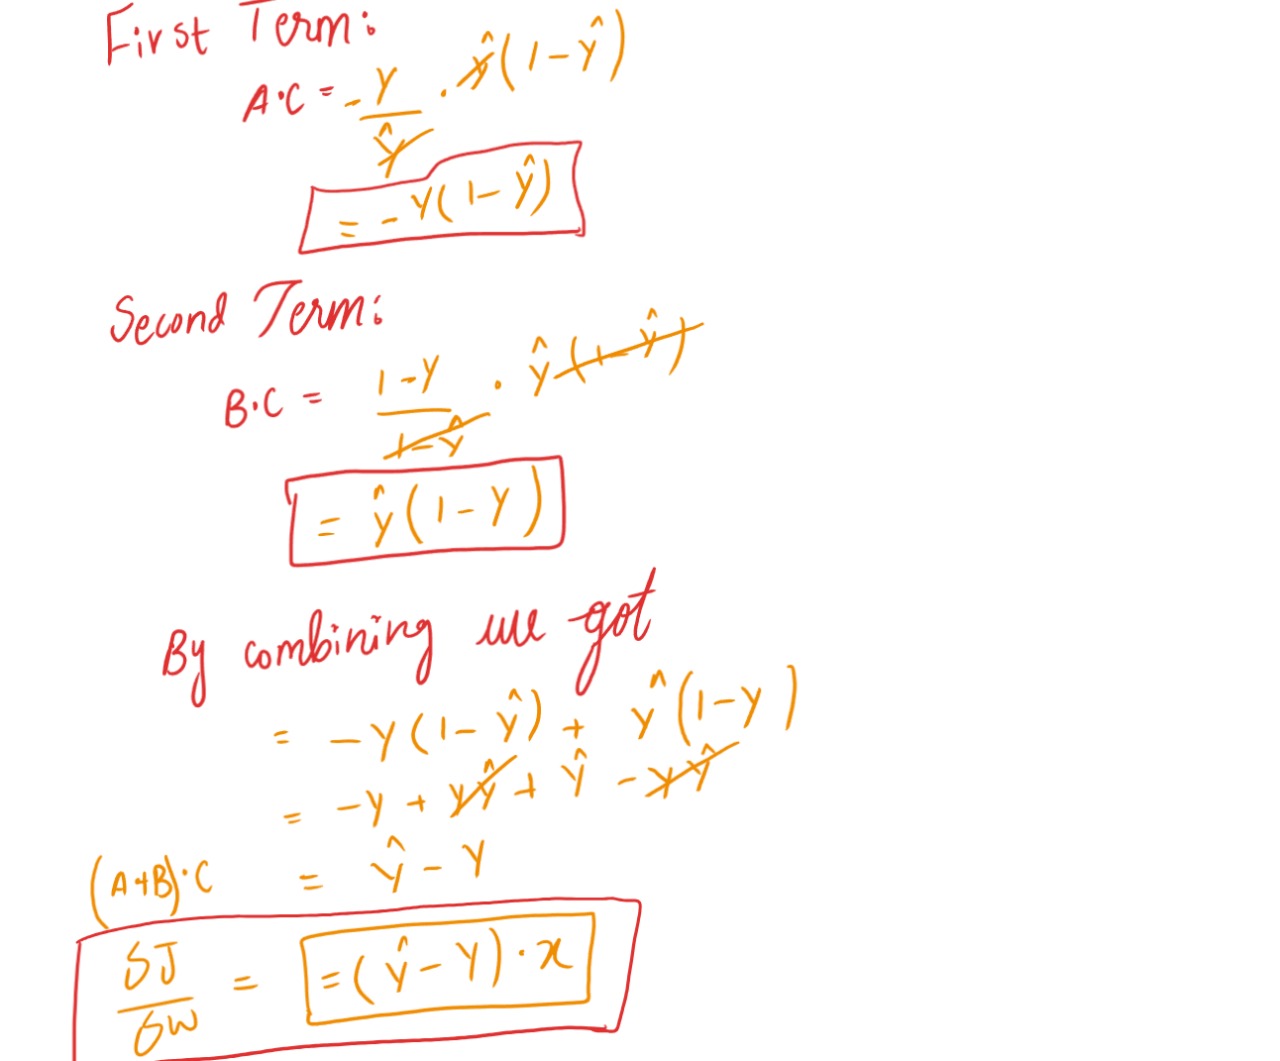 First Term:
A·C = - y/ŷ · ŷ(1-ŷ)
= - y(1-ŷ)
Second Term:
B·C = 1-y/1-ŷ · ŷ(1-ŷ)
= ŷ(1-y)
By combining we got
= -y(1-ŷ) + ŷ(1-y)
= -y + yŷ + ŷ - yŷ
(A+B)·C = ŷ - y
δJ/δw = =(ŷ-y)·x